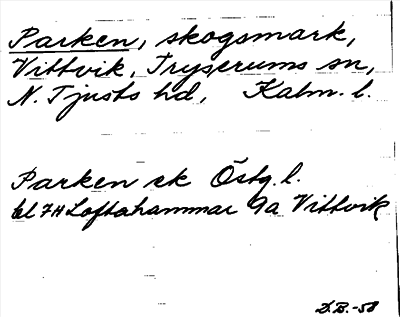 Parken, skogsmark,
Vittvik, Tryserums sn,
N. Tjusts hd, Kalm. l.
Parken ek Östg. l.
bl 7H Loftahammar 9a Vittvik
D.B.-58